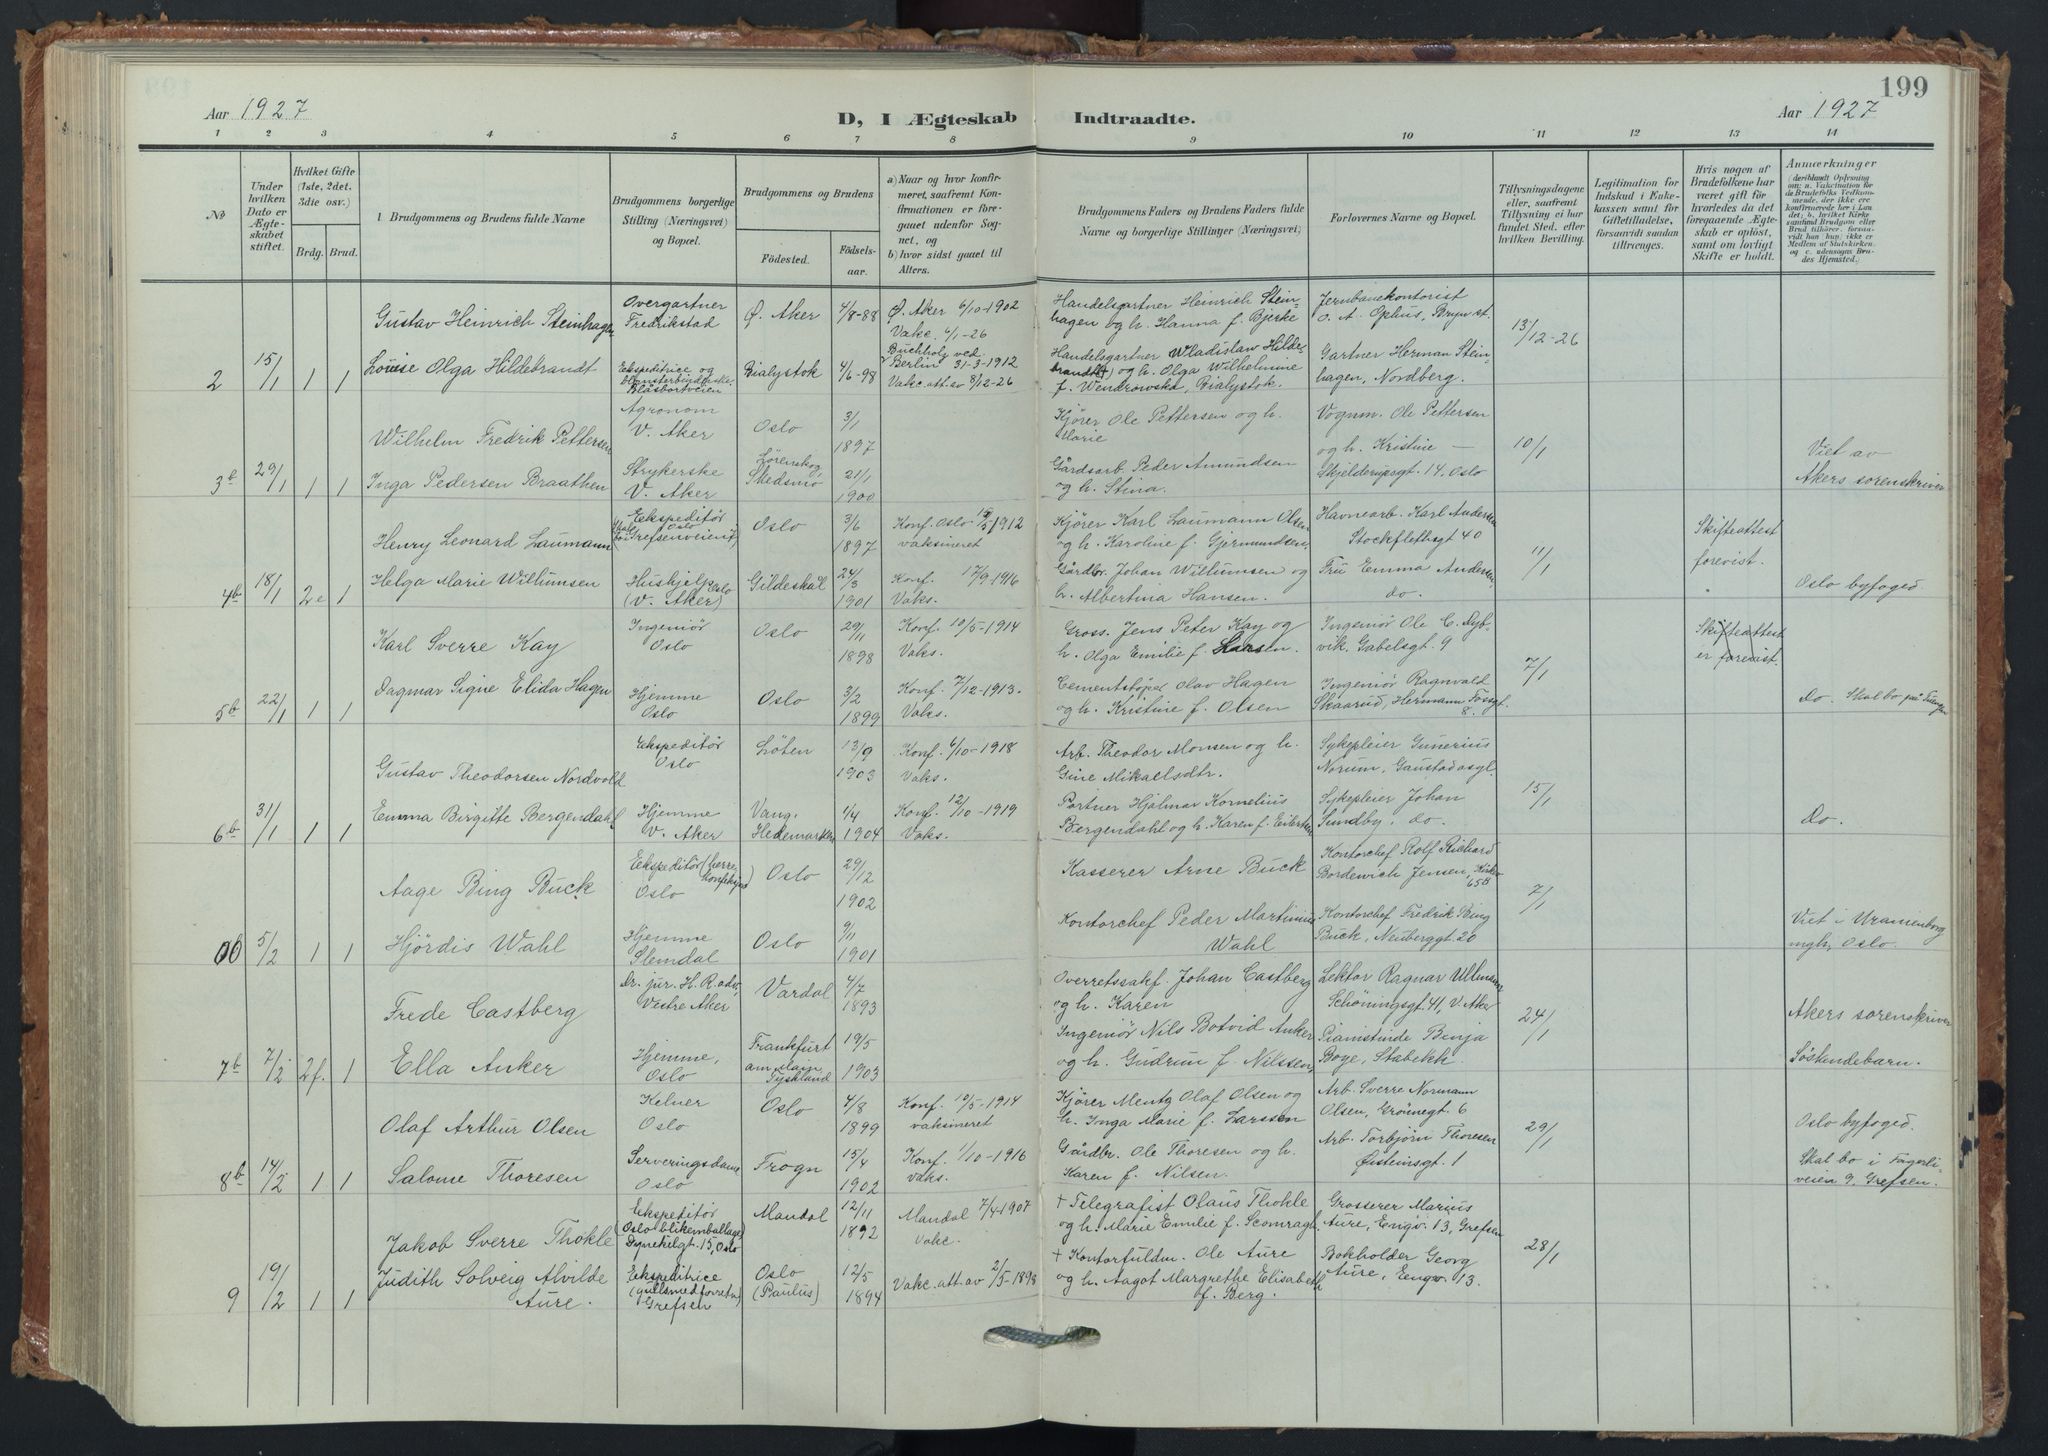 199
Aar 1927
D, I Ægteskab Indtraadte.
Aar 1927
1 2 3 4 5 6 7 8 9 10 11 12 13 14
No
Under hvilken Dato er Ægteskabet stiftet.
Hvilket Gifte (1ste, 2det. 3die osv.)
Brdg. Brud.
1 Brudgommens og Brudens fulde Navne
Brudgommens borgerlige Stilling (Næringsvei) og Bopæl.
Brudgommens og Brudens
Födested.
Födselsaar.
a) Naar og hvor konfirmeret, saafremt Konfirmationen er foregaaet udenfor Sognet, og
b) hvor sidst gaaet til Alters.
Brudgommens Faders og Brudens Faders fulde Navne og borgerlige Stillinger (Næringsvei)
Forlovernes Navne og Bopæl.
Tillysningsdagene eller, saafremt Tillysning ei har fundet Sted, efter hvilken Bevilling.
Legitimation for Indskud i Enkekassen samt for Giftetilladelse, forsaavidt saadan tiltrænges.
Hvis nogen af Brudefolkene har været gift för hvorledes da det foregaaende Ægteskab er oplöst, samt om lovligt Skifte er holdt.
Anmærkninger
(deriblandt Oplysning om: a. Vakcination for de Brudefolks Vedkommende, der ikke ere konfirmerede her i Landet; b. hvilket Kirkesamfund Brudgom eller Brud tilhører, forsaavidt han (hun) ikke er Medlem af Statskirken, og c. udensogns Brudes Hjemsted.)
Gustav Heinrich Steinhagen
Overgartner
Fredrikstad
Ø. Aker
4/8-88
Ø. Aker 6/10-1902
Vakc. 6/1-26
Handelsgartner Heinrich Steinhagen og h. Hanna f. Bjerke
Jernbanekontorist
O. A. Ophus, Bryn st.
13/12-26
2 15/1 1 1
Louise Olga Hildebrandt
Ekspeditrice og
Bialystok
4/6-98
Buchholz ved
Berlin 31-3-1912
Vakc. att. av 8/12-26
Handelsgartner Wladislaw Hildebrandt og h. Olga Wilhelmine
f. Wendrowska, Bialystok.
Gartner Herman Steinhagen, Nordberg.
Wilhelm Fredrik Pettersen
Agronom
V. Aker
Oslo
3/1
1897
Kjører Ole Pettersen og h.
Marie
Vognm. Ole Pettersen
og h. Kristine —
Skjelderupsgt. 14, Oslo
10/1
3b 29/1 1 1
Inga Pedersen Braathen
Strykerske
V. Aker
Lørenskog
Skedsmo
21/1
1900
Gårdsarb. Peder Amundsen
og h. Stina.
Viet av
Akers sorenskriver
Henry Leonard Laumann
Ekspeditör
Oslo
Oslo
3/6
1897
Konf. Oslo 1912
vaksineret
Kjører Karl Laumann Olsen
og h. Karoline f. Gjermundsen.
Havnearb. Karl Andersen
Stockflethsgt 40
11/1
Skifteattest
forevist.
4b 18/1 2e 1
Helga Marie Willumsen
Hushjelp Oslo
(V. Aker)
Gildeskål
24/3
1901
Konf. 17/9-1916
Vaks.
Gårdbr. Johan Willumsen og
h. Albertina Hansen.
Fru Emma Andersen
do.
Oslo byfoged.
Karl Sverre Kay
Ingeniör
Oslo
Oslo
29/11
1898
Konf. 10/5-1914
Vaks.
Gross. Jens Peter Kay og
h. Olga Emilie f. Larsen.
Ingeniör Ole C. Dybvik. Gabelsgt. 9
7/1
Skifteattest
er forevist.
5b 22/1 1 1
Dagmar Signe Elida Hagen
Hjemme
Oslo
Oslo
3/2
1899
Konf. 7/12-1913.
Vaks.
Cementstøper Olav Hagen
og h. Kristine f. Olsen
Ingeniör Ragnvald
Skaarud, Hermann Fossgt.
8.
do. Skal bo på
Gustav Theodorsen Nordvold
Ekspeditör
Oslo
Löten
13/9
1903
Konf. 6/10-1918
Vaks.
Arb. Theodor Monsen og h.
Gine Mikaelsdtr.
Sykepleier Gunerius
Norum, Gaustadasyl.
15/1
6b 31/1 1 1
Emma Birgitte Bergendahl
Hjemme
V. Aker
Vang.
Hedemarken
4/4
1904
Konf. 12/10-1919
Vaks.
Portner Hjalmar Kornelius
Bergendahl og h. Karen f. Eilertsen
Sykepleier Johan
Sundby, do.
Do.
Aage Bing Buck
Ekspeditör (herrekonfeksjon)
Oslo
Oslo
29/12
1902
Kasserer Arne Buck
Kontorchef Rolf Richard
Bordewich Jensen, Kirkev.
65B
7/1
06 5/2 1 1
Hjördis Wahl
Hjemme
Slemdal
Oslo
9/11
1901
Kontorchef Peder Martinius
Wahl
Kontorchef Fredrik Bing
Buck, Neuberggt. 20
Viet i Uranienborg
mgh, Oslo.
Frede Castberg
Dr. jur. H. R. adv,
Vestre Aker
Vardal
4/7
1893
Overretssakf. Johan Castberg
og h. Karen
Lektor Ragnar Ullmann
Schöningsgt. 41, V. Aker
24/1
Akers sorenskriver
7b 7/2 2f. 1
Ella Anker
Hjemme,
Oslo
Frankfurt
am Main
Tyskland
19/5
1903
Ingeniör Nils Botvid Anker
og h. Gudrun f. Nilssen,
Pianistinde Benja
Boye, Stabekk.
Söskendebarn.
Olaf Arthur Olsen
Kelner
Oslo
Oslo
4/8
1899
Konf. 10/5-1914
vaksineret
Kjører Mentz Olaf Olsen og
h. Inga Marie f. Larssen
Arb. Sverre Normann
Olsen, Grönnegt. 6
29/1
Oslo byfoged.
8b 14/2 1 1
Salome Thoresen
Serveringsdame
Oslo
Frogn
15/4
1902
Konf. 1/10-1916
vaks.
Gårdbr. Ole Thoresen og h.
Karen f. Nilsen.
Arb. Torbjörn Thoresen
Øisteinsgt. 1
Skal bo i Fagerliveien 9, Grefsen.
Jakob Sverre Thokle
Ekspeditör
(Oslo blikemballage)
Dynekilgt. 15, Oslo
Mandal
12/11
1892
Mandal 7/4-1907
Vakc.
+ Telegrafist Olaus Thokle
og h. Marie Emilie f. Scomragh
Grosserer Marius
Aure, Engv. 13, Grefsen
28/1
9 19/2 1 1
Judith Solveig Alvilde
Aure.
Ekspeditrice
(gullsmedforretn.)
Grefsen
Oslo
(Paulus)
12/5
1894
Vakc. att. av 2/5-1898
+ Kontorfuldm. Ole Aure
og h. Aagot Margrethe Elisabeth
f. Berg.
Bokholder Georg
Aure, Engv. 13.